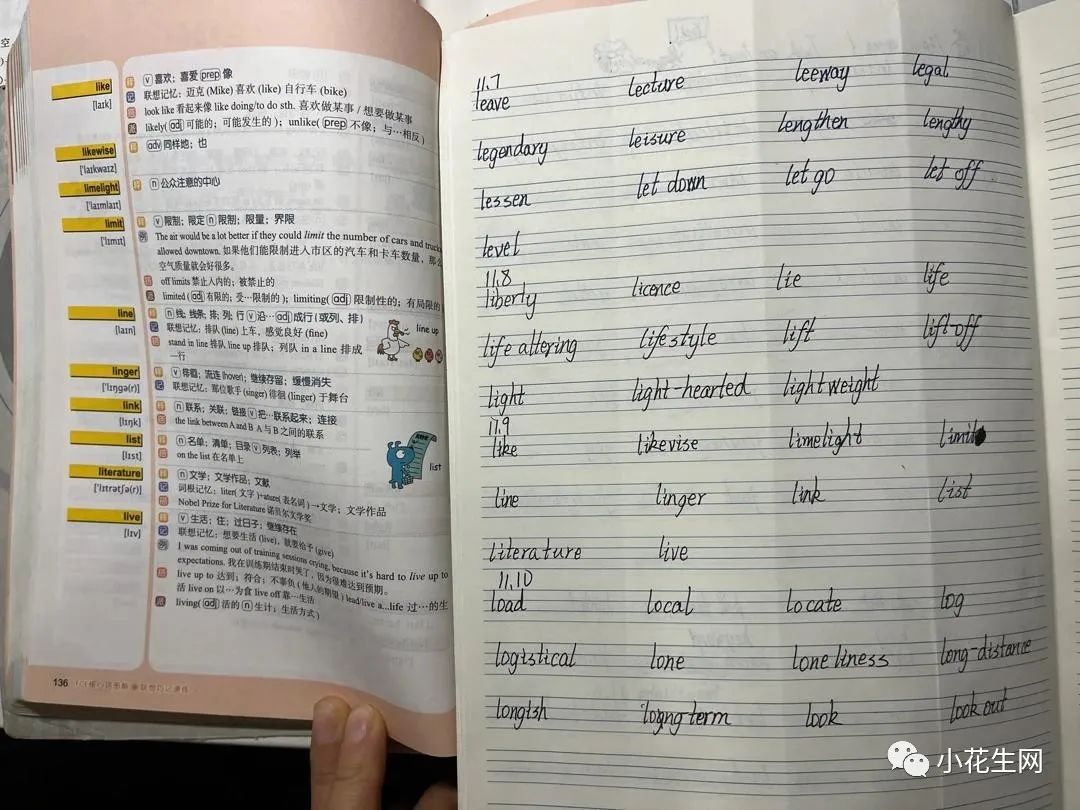 like
[laɪk]
v 喜欢；喜爱 prep 像
联想记忆：迈克 (Mike) 喜欢 (like) 自行车 (bike)
look like 看起来像 like doing/to do sth. 喜欢做某事 / 想要做某事
likely( adj 可能的；可能发生的 )；unlike( prep 不像；与…相反)
likewise
['laɪkwaɪz]
adv 同样地；也
limelight
['laɪmlaɪt]
n 公众注意的中心
limit
['lɪmɪt]
v 限制；限定 n 限制；限量；界限
The air would be a lot better if they could limit the number of cars and trucks
allowed downtown. 如果他们能限制进入市区的汽车和卡车数量，那么
空气质量就会好很多。
off limits 禁止入内的；被禁止的
limited ( adj 有限的；受…限制的 )；limiting( adj 限制性的；有局限的
line
[laɪn]
n 线；线条；排；列；行 v 沿…成行 (或列、排)
联想记忆：排队 (line) 上车，感觉良好 (fine)
stand in line 排队 line up 排队；列队 in a line 排成
一行
line up
linger
['lɪŋgə(r)]
v 徘徊；流连 (hover)；继续存留；缓慢消失
联想记忆：那位歌手 (singer) 徘徊 (linger) 于舞台
link
[lɪŋk]
n 联系；关联；链接 v 把…联系起来；连接
the link between A and B A 与 B 之间的联系
list
[lɪst]
n 名单；清单；目录 v 列表；列举
on the list 在名单上
list
literature
['lɪtrətʃə(r)]
n 文学；文学作品；文献
词根记忆：liter( 文字 )+ature( 表名词 ) →文学；文学作品
Nobel Prize for Literature 诺贝尔文学奖
live
[lɪv]
v 生活；住；过日子；继续存在
联想记忆：想要生活 (live)，就要给予 (give)
I was coming out of training sessions crying, because it's hard to live up to
expectations. 我在训练期结束时哭了，因为很难达到预期。
live up to 达到；符合；不辜负 ( 他人的期望 ) lead/live a...life 过…的生
活 live on 以…为食 live off 靠…生活
living( adj 活的 n 生计；生活方式 )
136
11.7
leave lecture leeway legal
legendary leisure lengthen lengthy
lessen let down let go let off
level
11.8
liberty licence lie life
life altering lifestyle lift lift-off
light light-hearted lightweight
11.9
like likevise limelight limit
line linger link list
literature live
11.10
load local locate log
logistical lone loneliness long-distance
longish long term look look out
小花生网